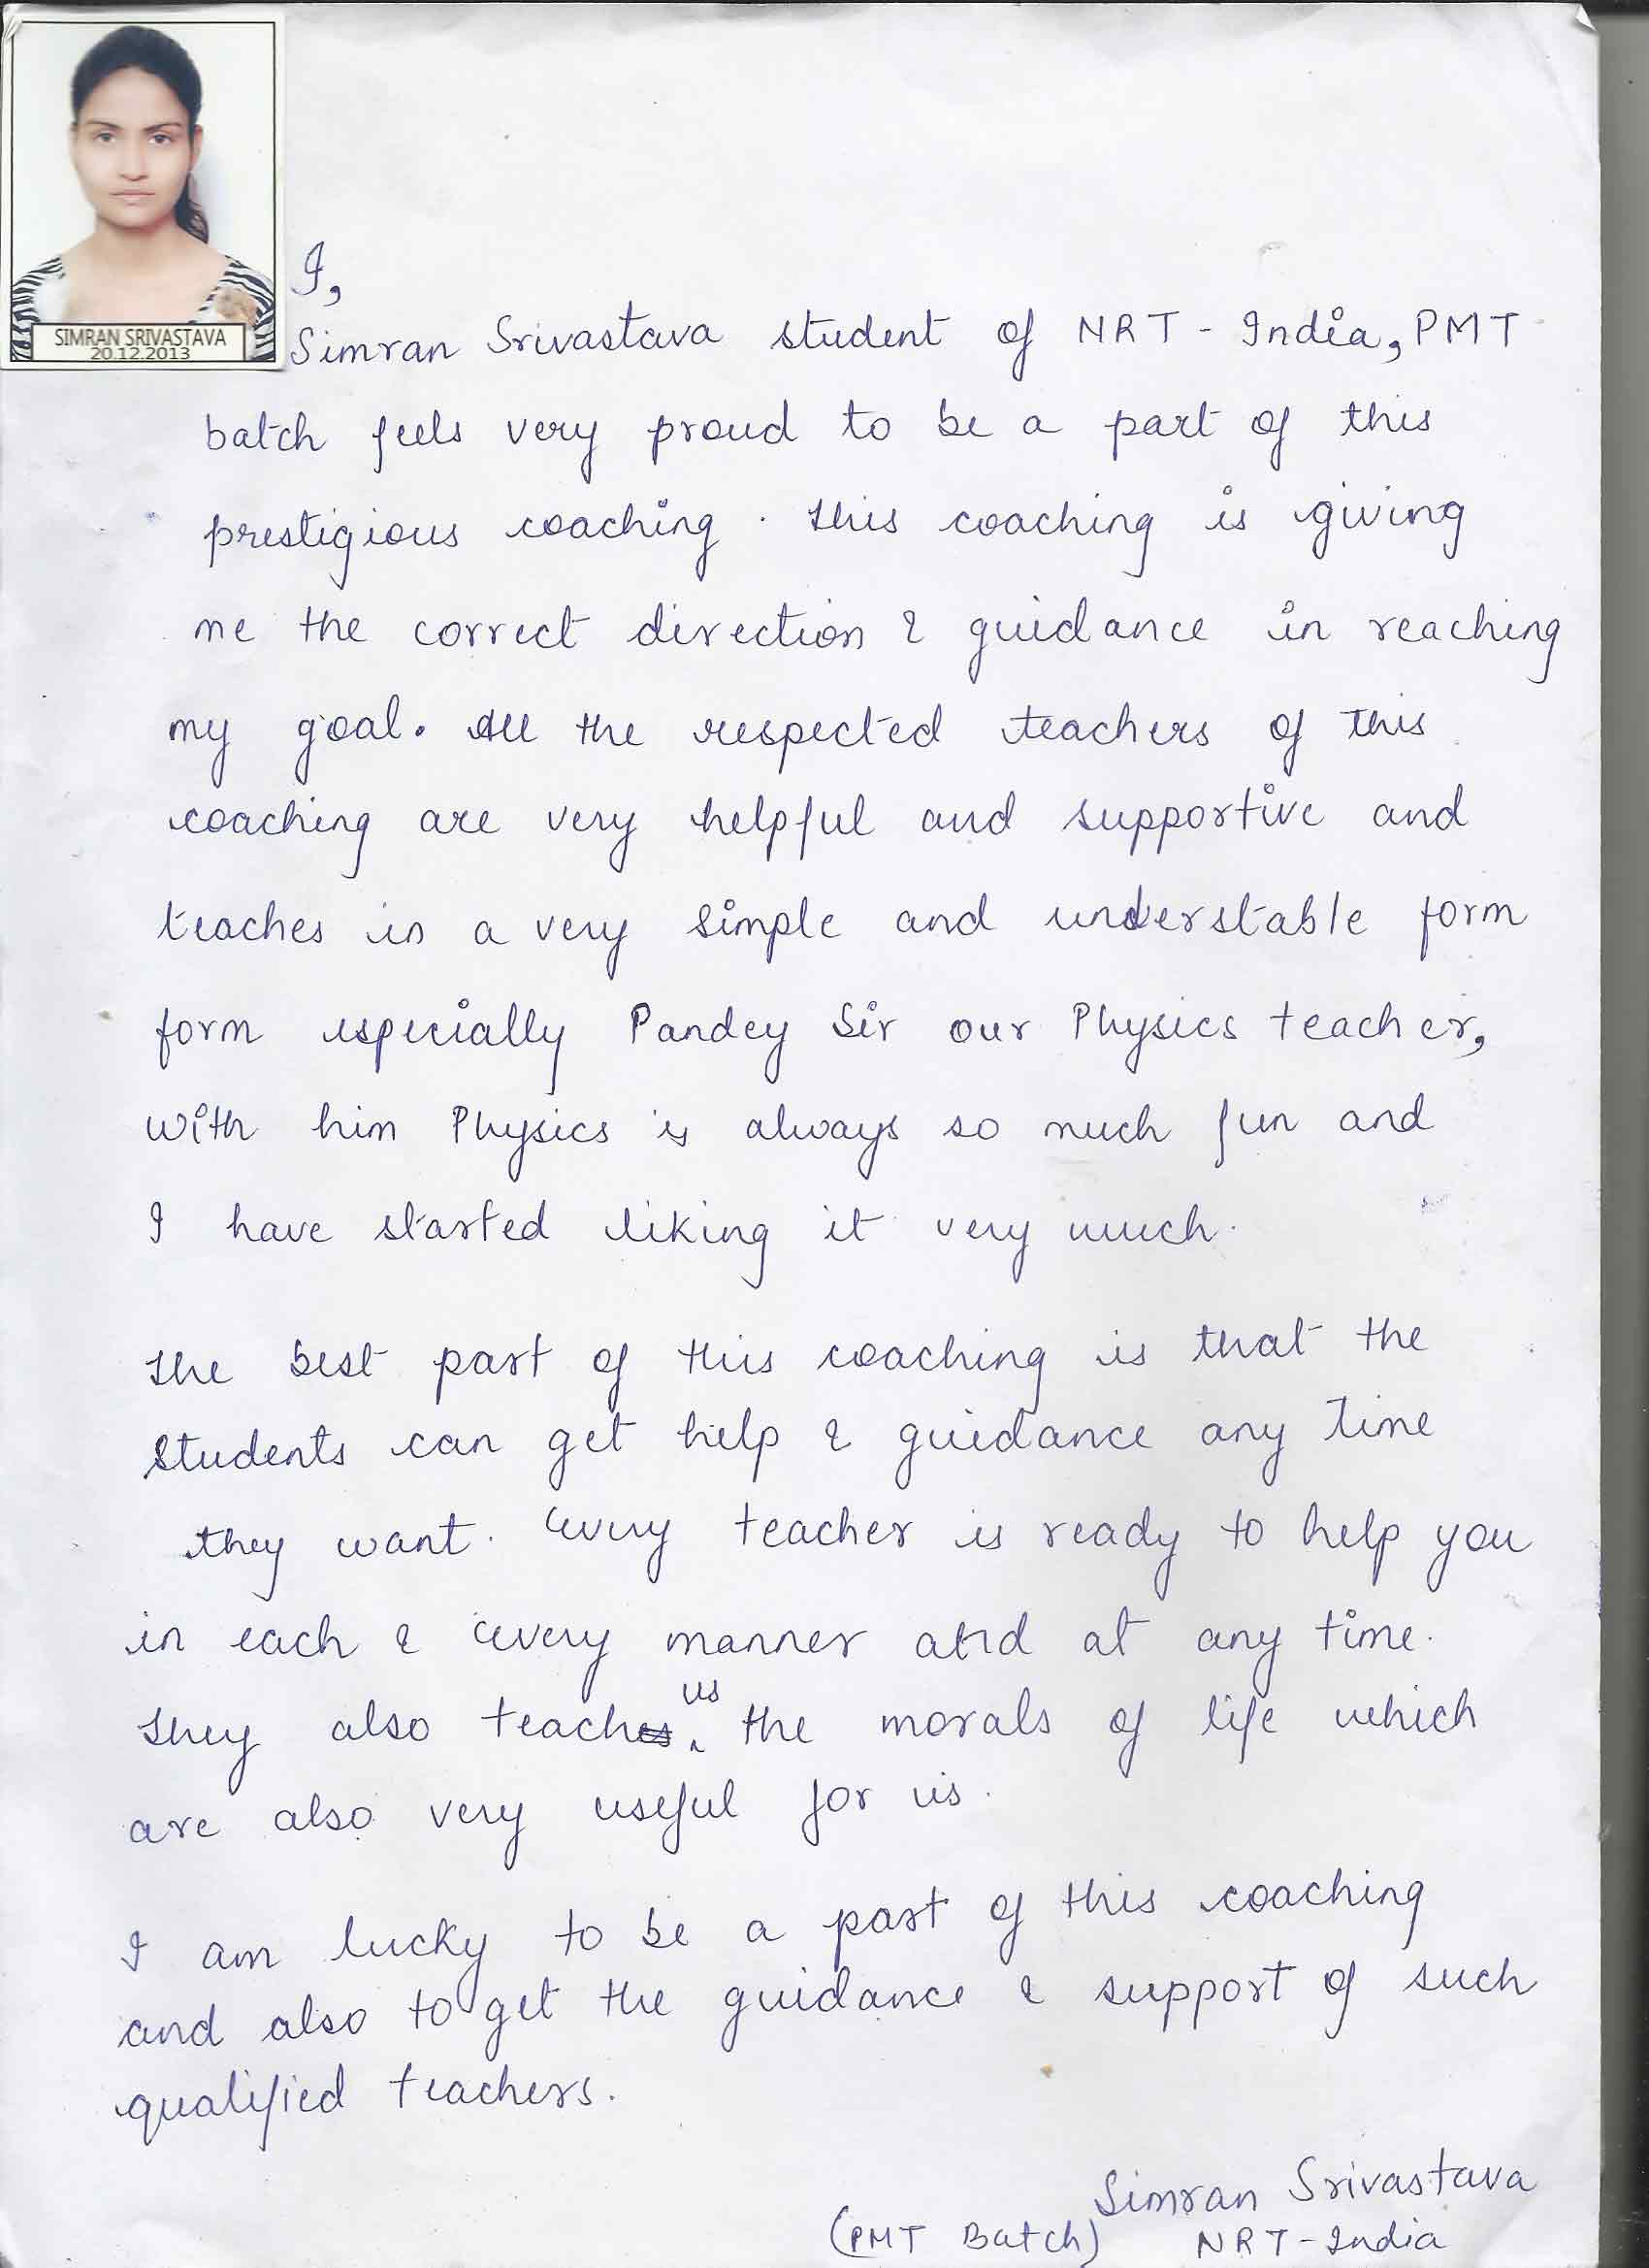 SIMRAN SRIVASTAVA
20.12.2013
I,
Simran Srivastava student of NRT - India, PMT
batch feels very proud to be a part of this
prestigious coaching. This coaching is giving
me the correct direction & guidance in reaching
my goal. All the respected teachers of this
coaching are very helpful and supportive and
teaches in a very simple and understable form
form especially Pandey Sir our Physics teacher,
with him Physics is always so much fun and
I have started liking it very much.
The best part of this coaching is that the
students can get help & guidance any time
they want. Every teacher is ready to help you
in each & every manner and at any time.
They also teach us the morals of life which
are also very useful for us.
I am lucky to be a part of this coaching
and also to get the guidance & support of such
qualified teachers.
Simran Srivastava
(PMT Batch) NRT-India